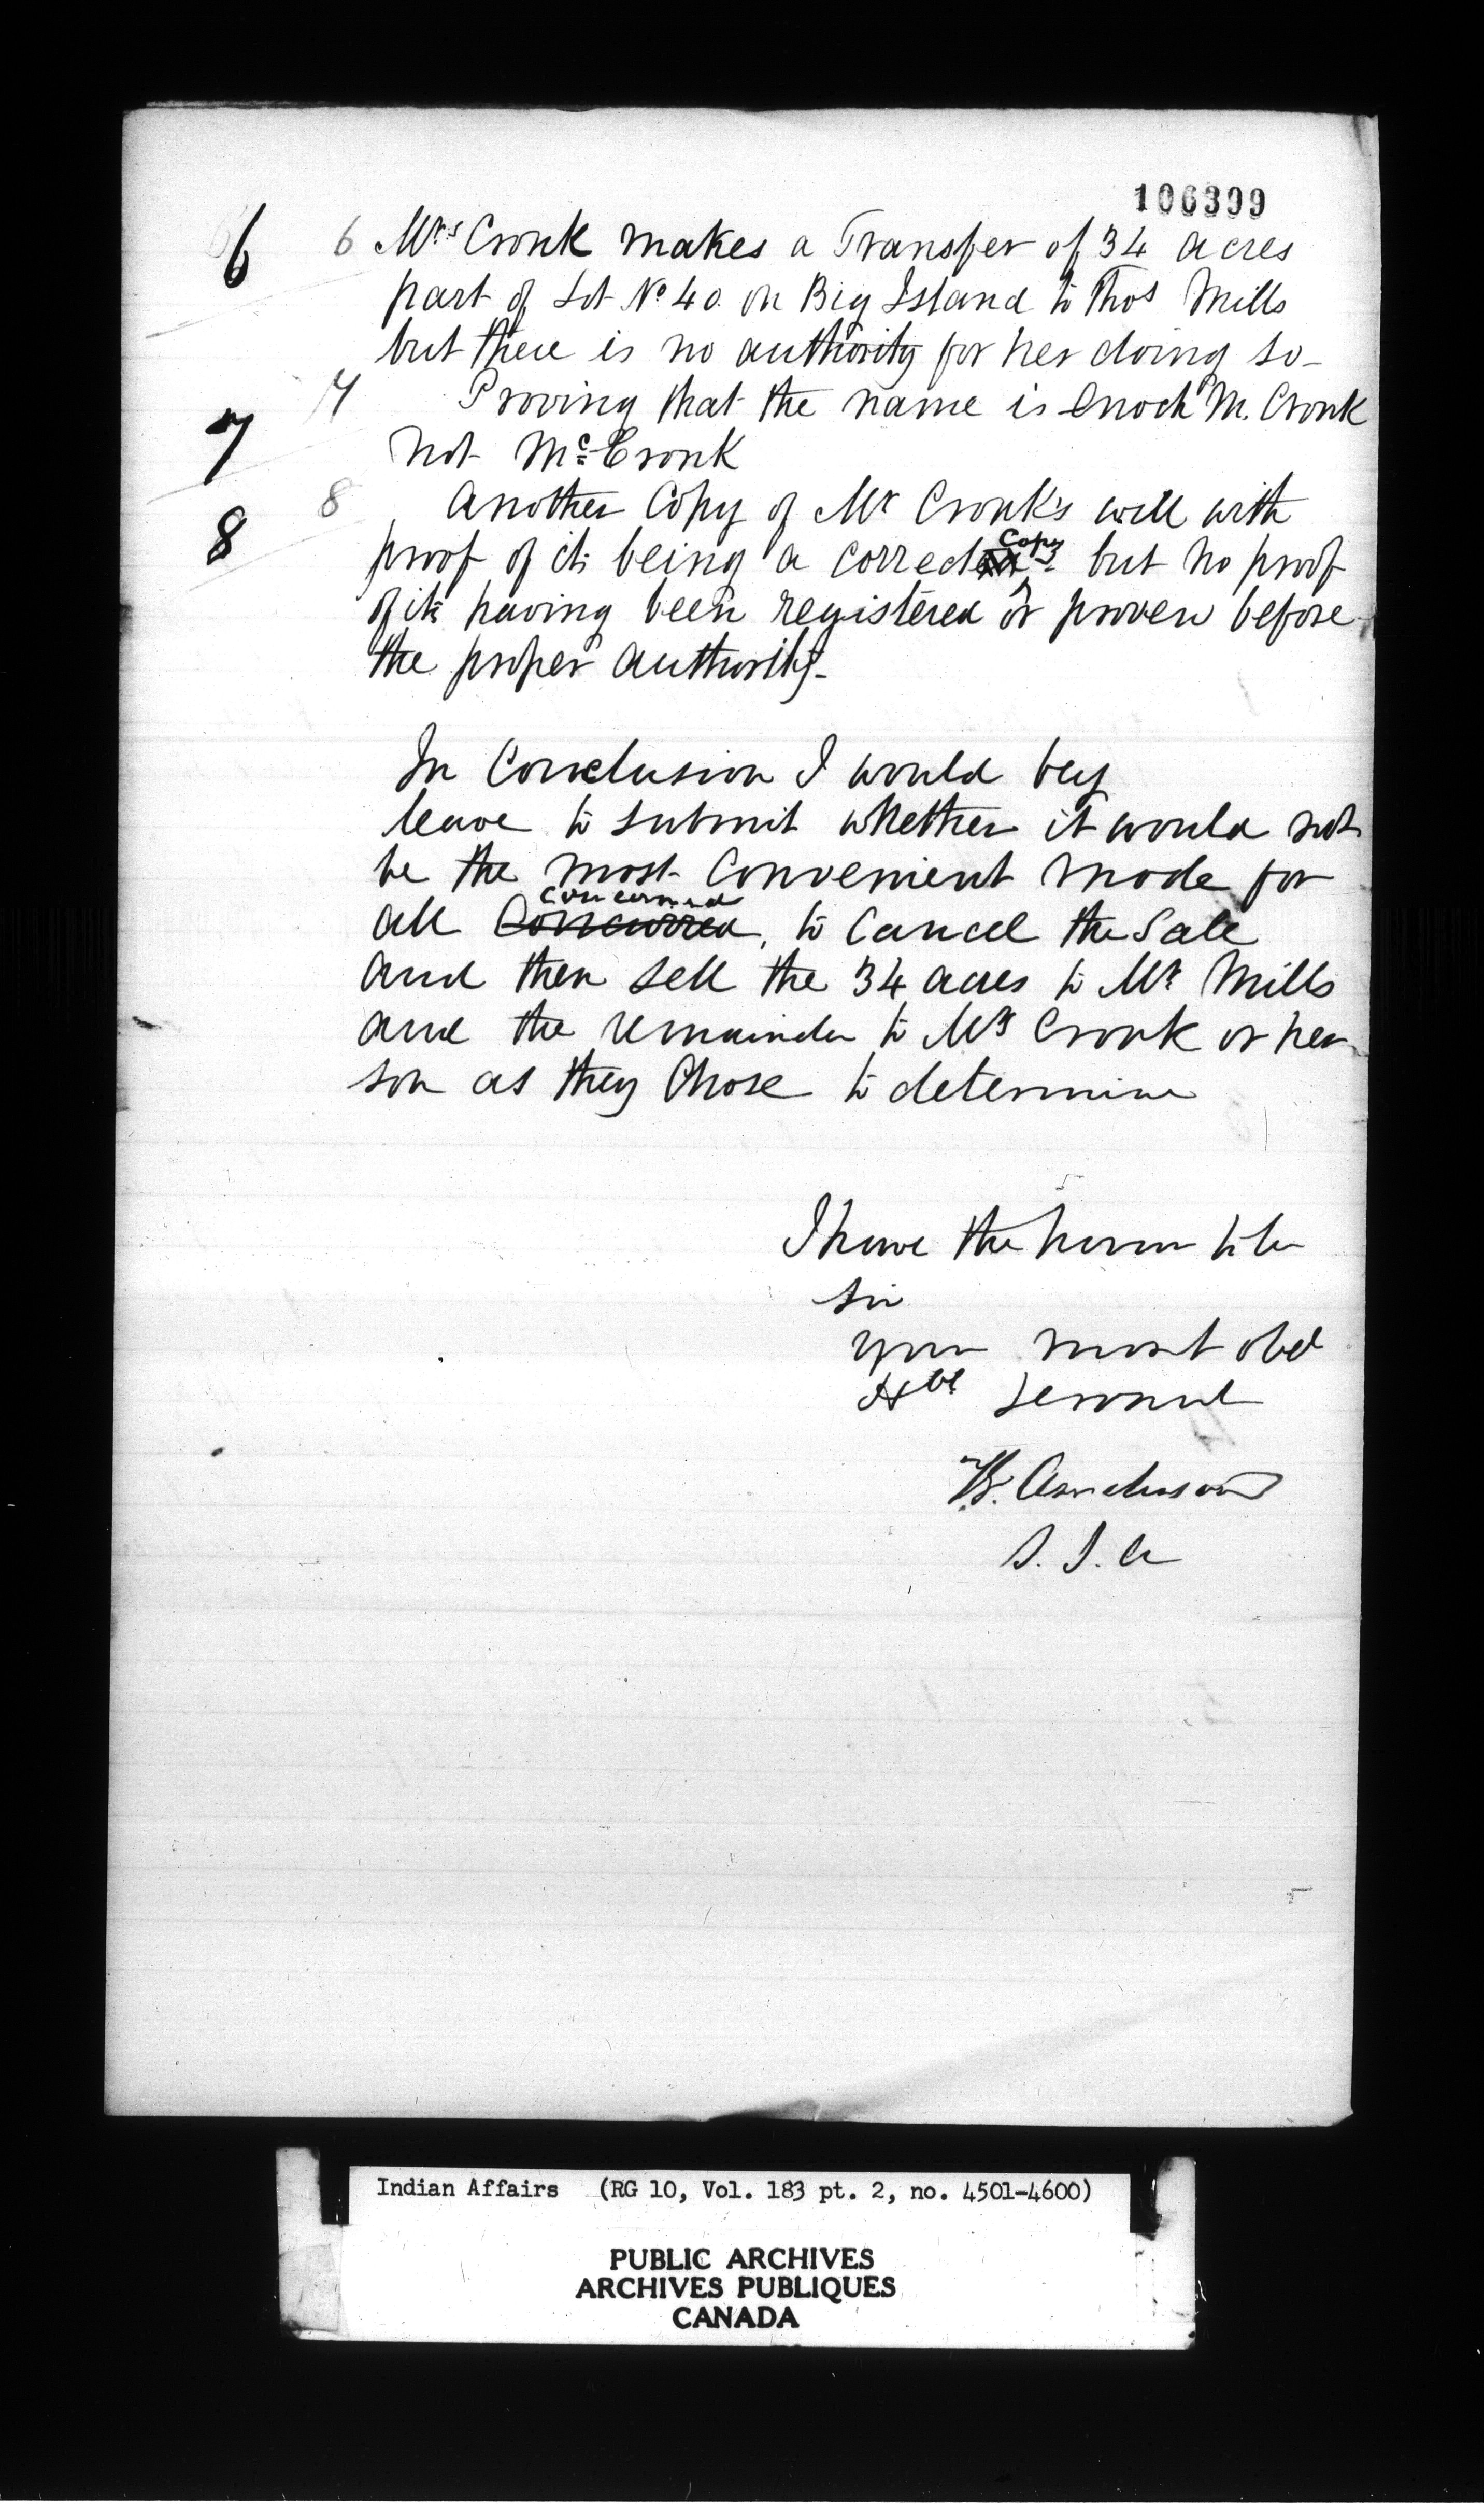 106399
6 6 Mrs Cronk makes a Transfer of 34 acres
part of Lot No 40 on Big Island to Thos Mills
but there is no authority for her doing so-
7 7 Proving that the name is Enoch M. Cronk
not Mc Cronk
8 8 Another Copy of Mr Cronk's will with
proof of its being a correct Copy but no proof
of its having been registered or proven before
the proper authority-
In Conclusion I would beg
leave to submit whether it would not
be the most Convenient mode for
all Concurred concerned, to Cancel the Sale
and then sell the 34 acres to Mr Mills
and the remainder to Mrs Cronk or her
son as they Chose to determine
I have the honor to be
Sir
Your most obd
Hble Servant
S. I. A
Indian Affairs (RG 10, Vol. 183 pt. 2, no. 4501-4600)
PUBLIC ARCHIVES
ARCHIVES PUBLIQUES
CANADA